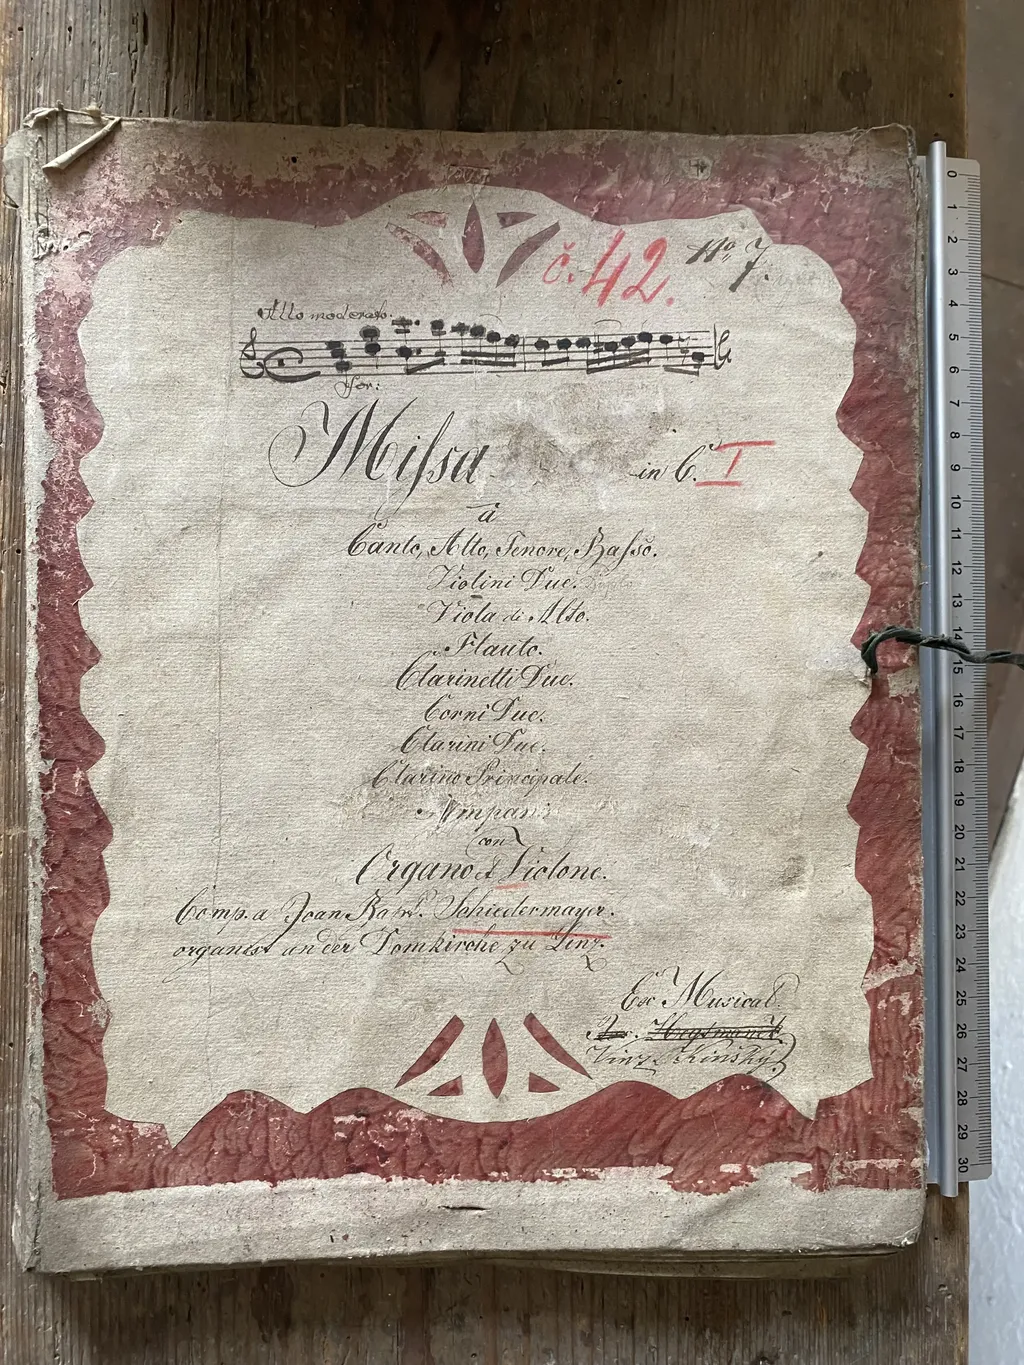 č. 42. No 7.
Allo moderato.
for:
Missa in C. I
á
Canto, Alto, Tenore, Basso.
Violini Due.
Viola di Alto.
Flauto.
Clarinetti Due.
Corni Due.
Clarini Due.
Clarino Principale.
Timpani
con
Organo et Violone.
Comp. a Joan Bapt. Schiedermayer.
organist an der Domkirche zu Linz.
Ex Musical.
Vinz Kinský
0
1
2
3
4
5
6
7
8
9
10
11
12
13
14
15
16
17
18
19
20
21
22
23
24
25
26
27
28
29
30